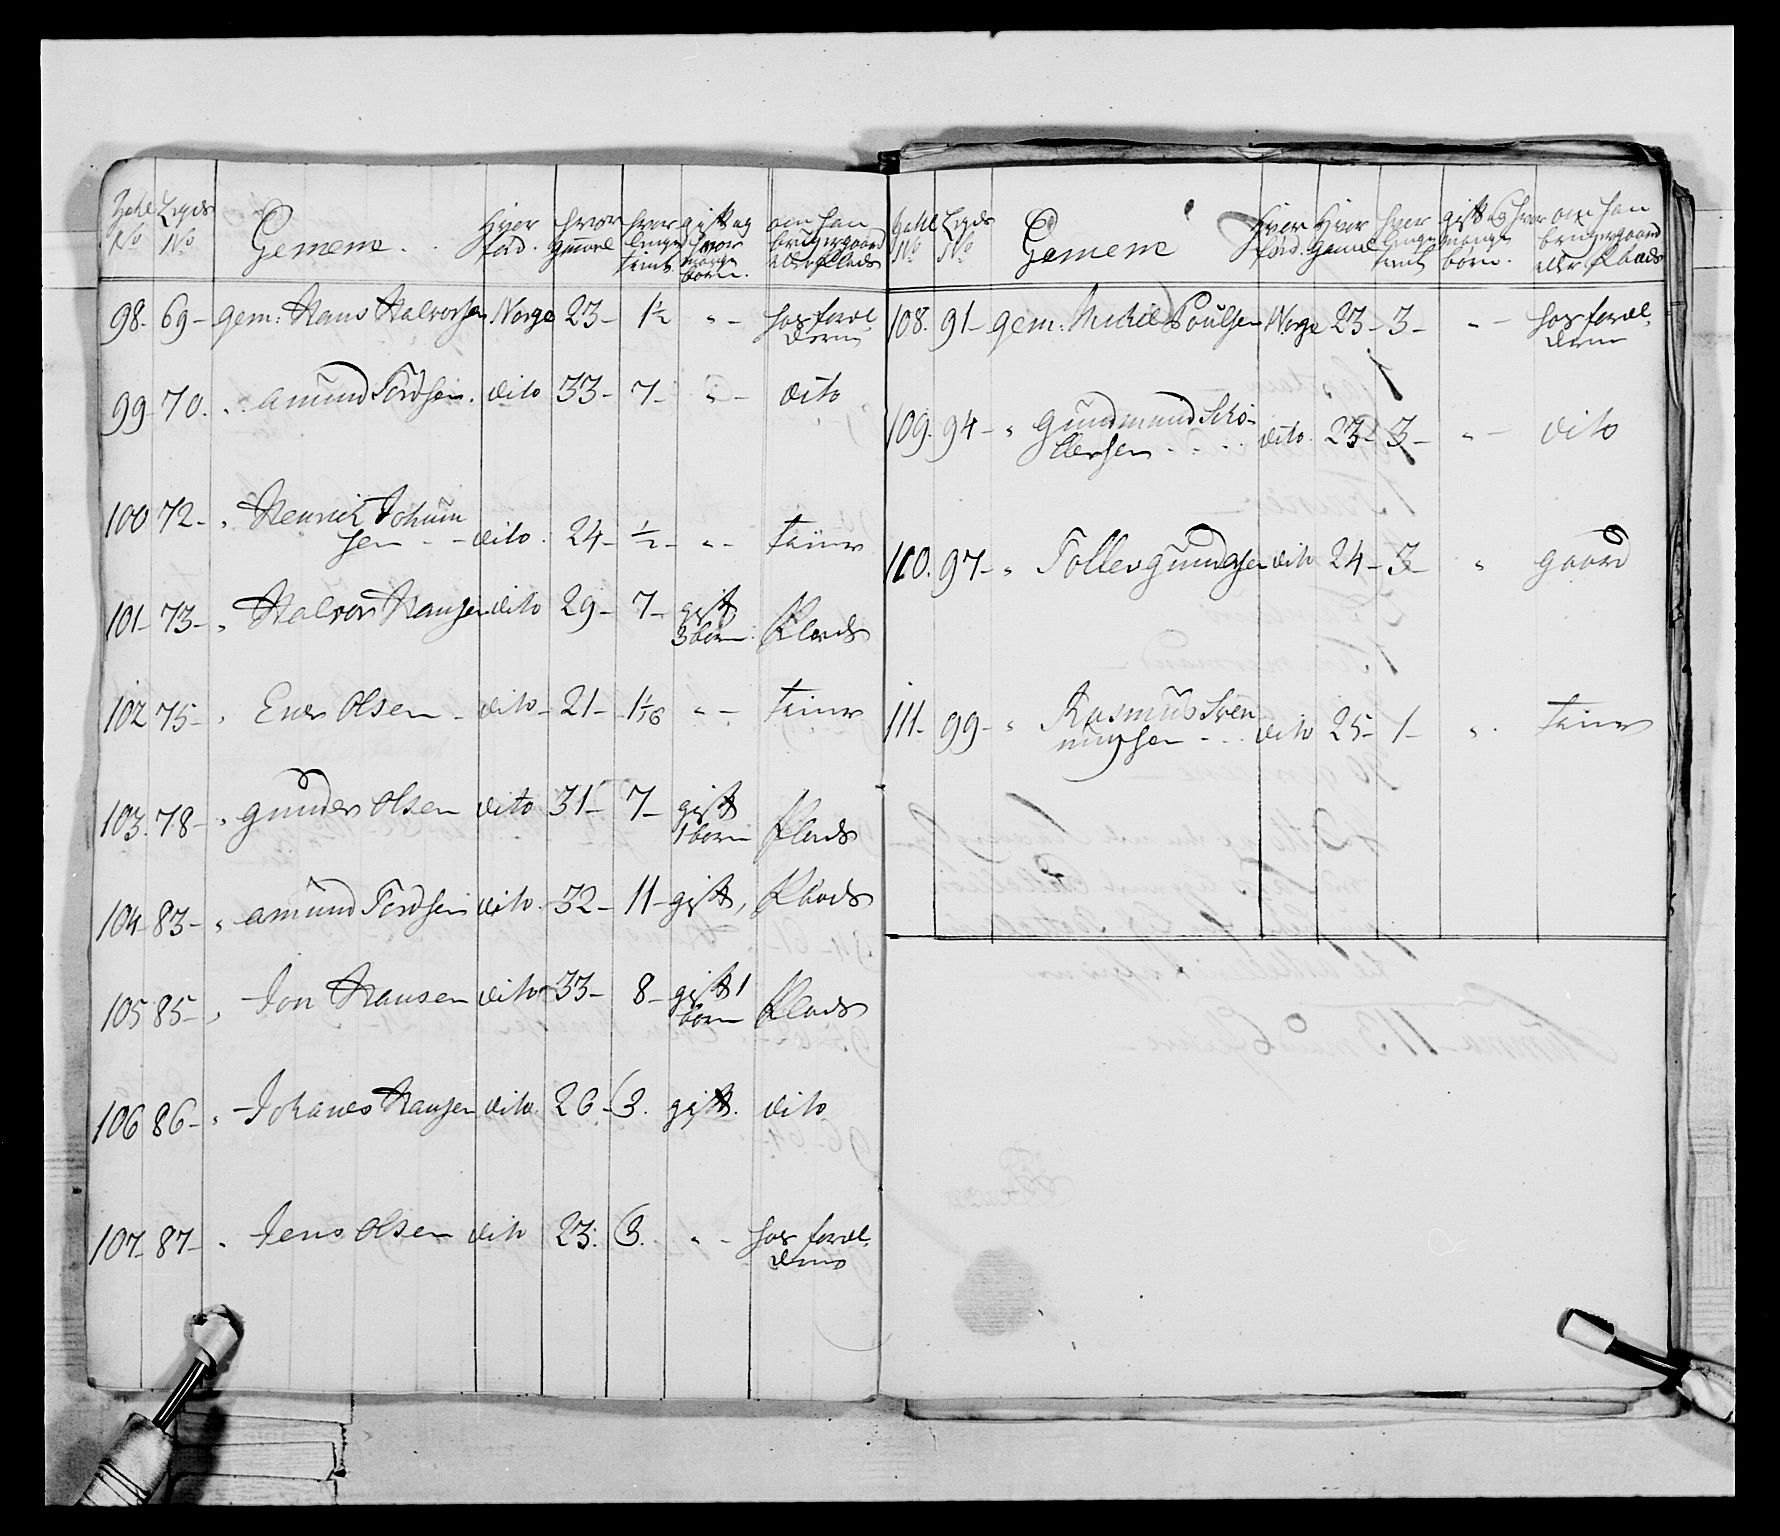 Zahl No Legds No Gemene Hvor fød. hvor Gamel hvor lenge tient gift og hvor mange born. om han bruger gaard eller Plads
98. 69 gem: Hans Halvorsen Norge 23 1½ " hos foræl-
derne
99 70. " Amund Tordsen. dito 33 7 " dito
100 72 " Henrich Johan
sen dito 24 ½ " tiener
101 73 " Halvor Hansen dito 29 7 gift
3 born Plads
102 75 " Ener Olsen dito 21 1 1/16 " tiener
103. 78 " Gunder Olsen dito 31 7 gift
1 born Plads
104 83 " Amund Tordsen dito 32 11 gift, Plads
105 85 " Jon Hansen dito 33 8 gift 1
born Plads
106 86 " Johanes Hansen dito. 26 3. gift. dito
107 87 " Jens Olsen dito 23. 3. " hos foræl-
derne
Zahl No Legds No Gemene Hvor fød. Hvor Gamel hvor lenge tient gift og hvor mange born. om han bruger gaard eller Plads
108. 91 gem: Michel Poulsen Norge 23 3 " hos foræl-
derne
109. 94 " Gundmund
dito. 23 3 " dito
110. 97 " Tollev Gundersen dito 24 3 " gaard
111. 99 " Rasmus Sven
ningsen dito 25 1 " tiener